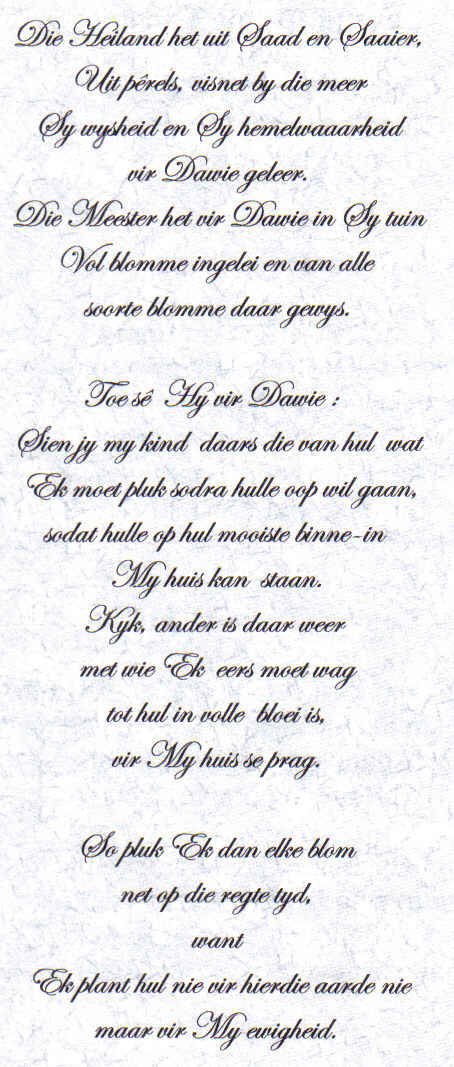 Die Heiland het uit Saad en Saaier,
Uit pêrels, visnet by die meer
Sy wysheid en Sy hemelwaaarheid
vir Dawie geleer.
Die Meester het vir Dawie in Sy tuin
Vol blomme ingelei en van alle
soorte blomme daar gewys.
Toe sê Hy vir Dawie :
Sien jy my kind daars die van hul wat
Ek moet pluk sodra hulle oop wil gaan,
sodat hulle op hul mooiste binne-in
My huis kan staan.
Kyk, ander is daar weer
met wie Ek eers moet wag
tot hul in volle bloei is,
vir My huis se prag.
So pluk Ek dan elke blom
net op die regte tyd,
want
Ek plant hul nie vir hierdie aarde nie
maar vir My ewigheid.